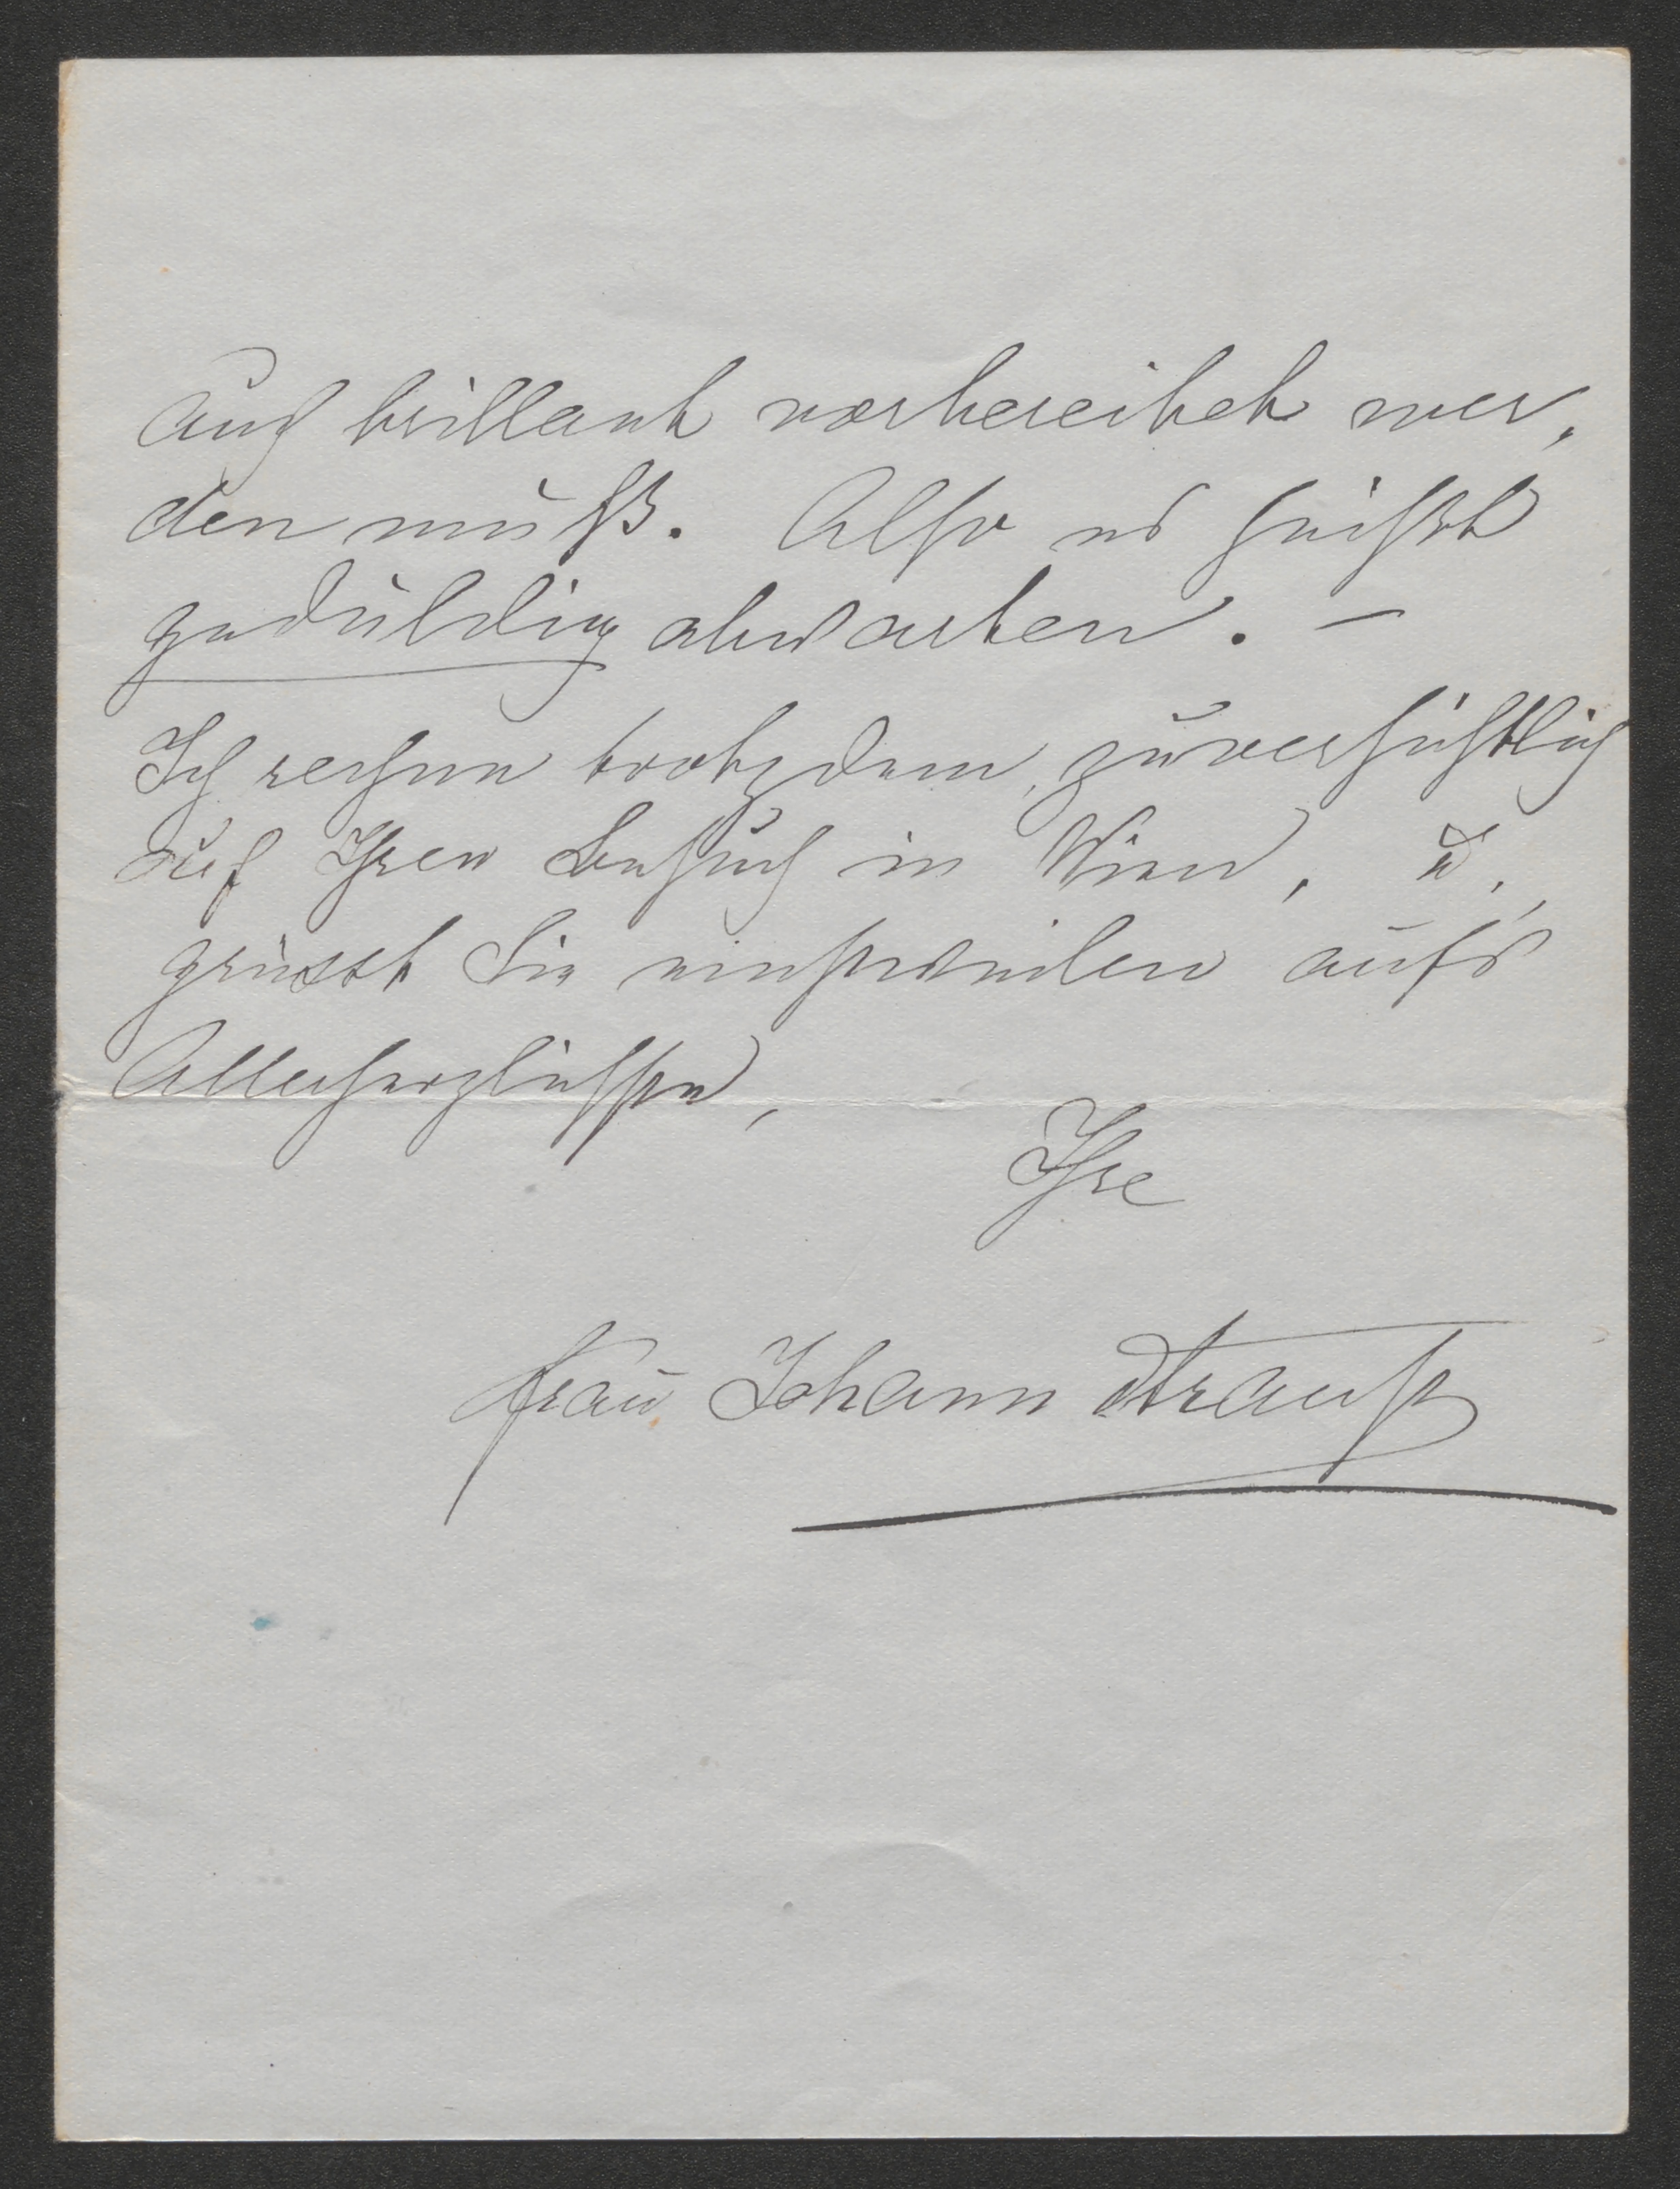 auch brillant vorbereitet wer,
den muß. Also es heißt
geduldig abwarten. –
Ich rechne trotzdem, zuversichtlich
auf Ihren Besuch in Wien, u.,
grüsst Sie einstweilen aufs
Allerherzlichste,
Ihre
Frau Johann Strauß